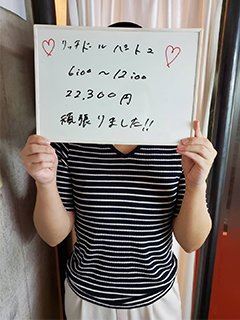 リッチドール パート2
6:00〜12:00
22,300円
頑張りました!!